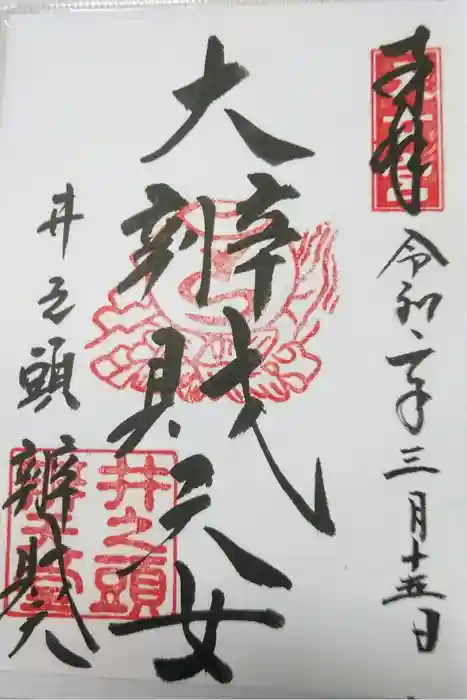 奉拝
令和二年三月十五日
大辨財天女
井之頭
辨財天
井之頭